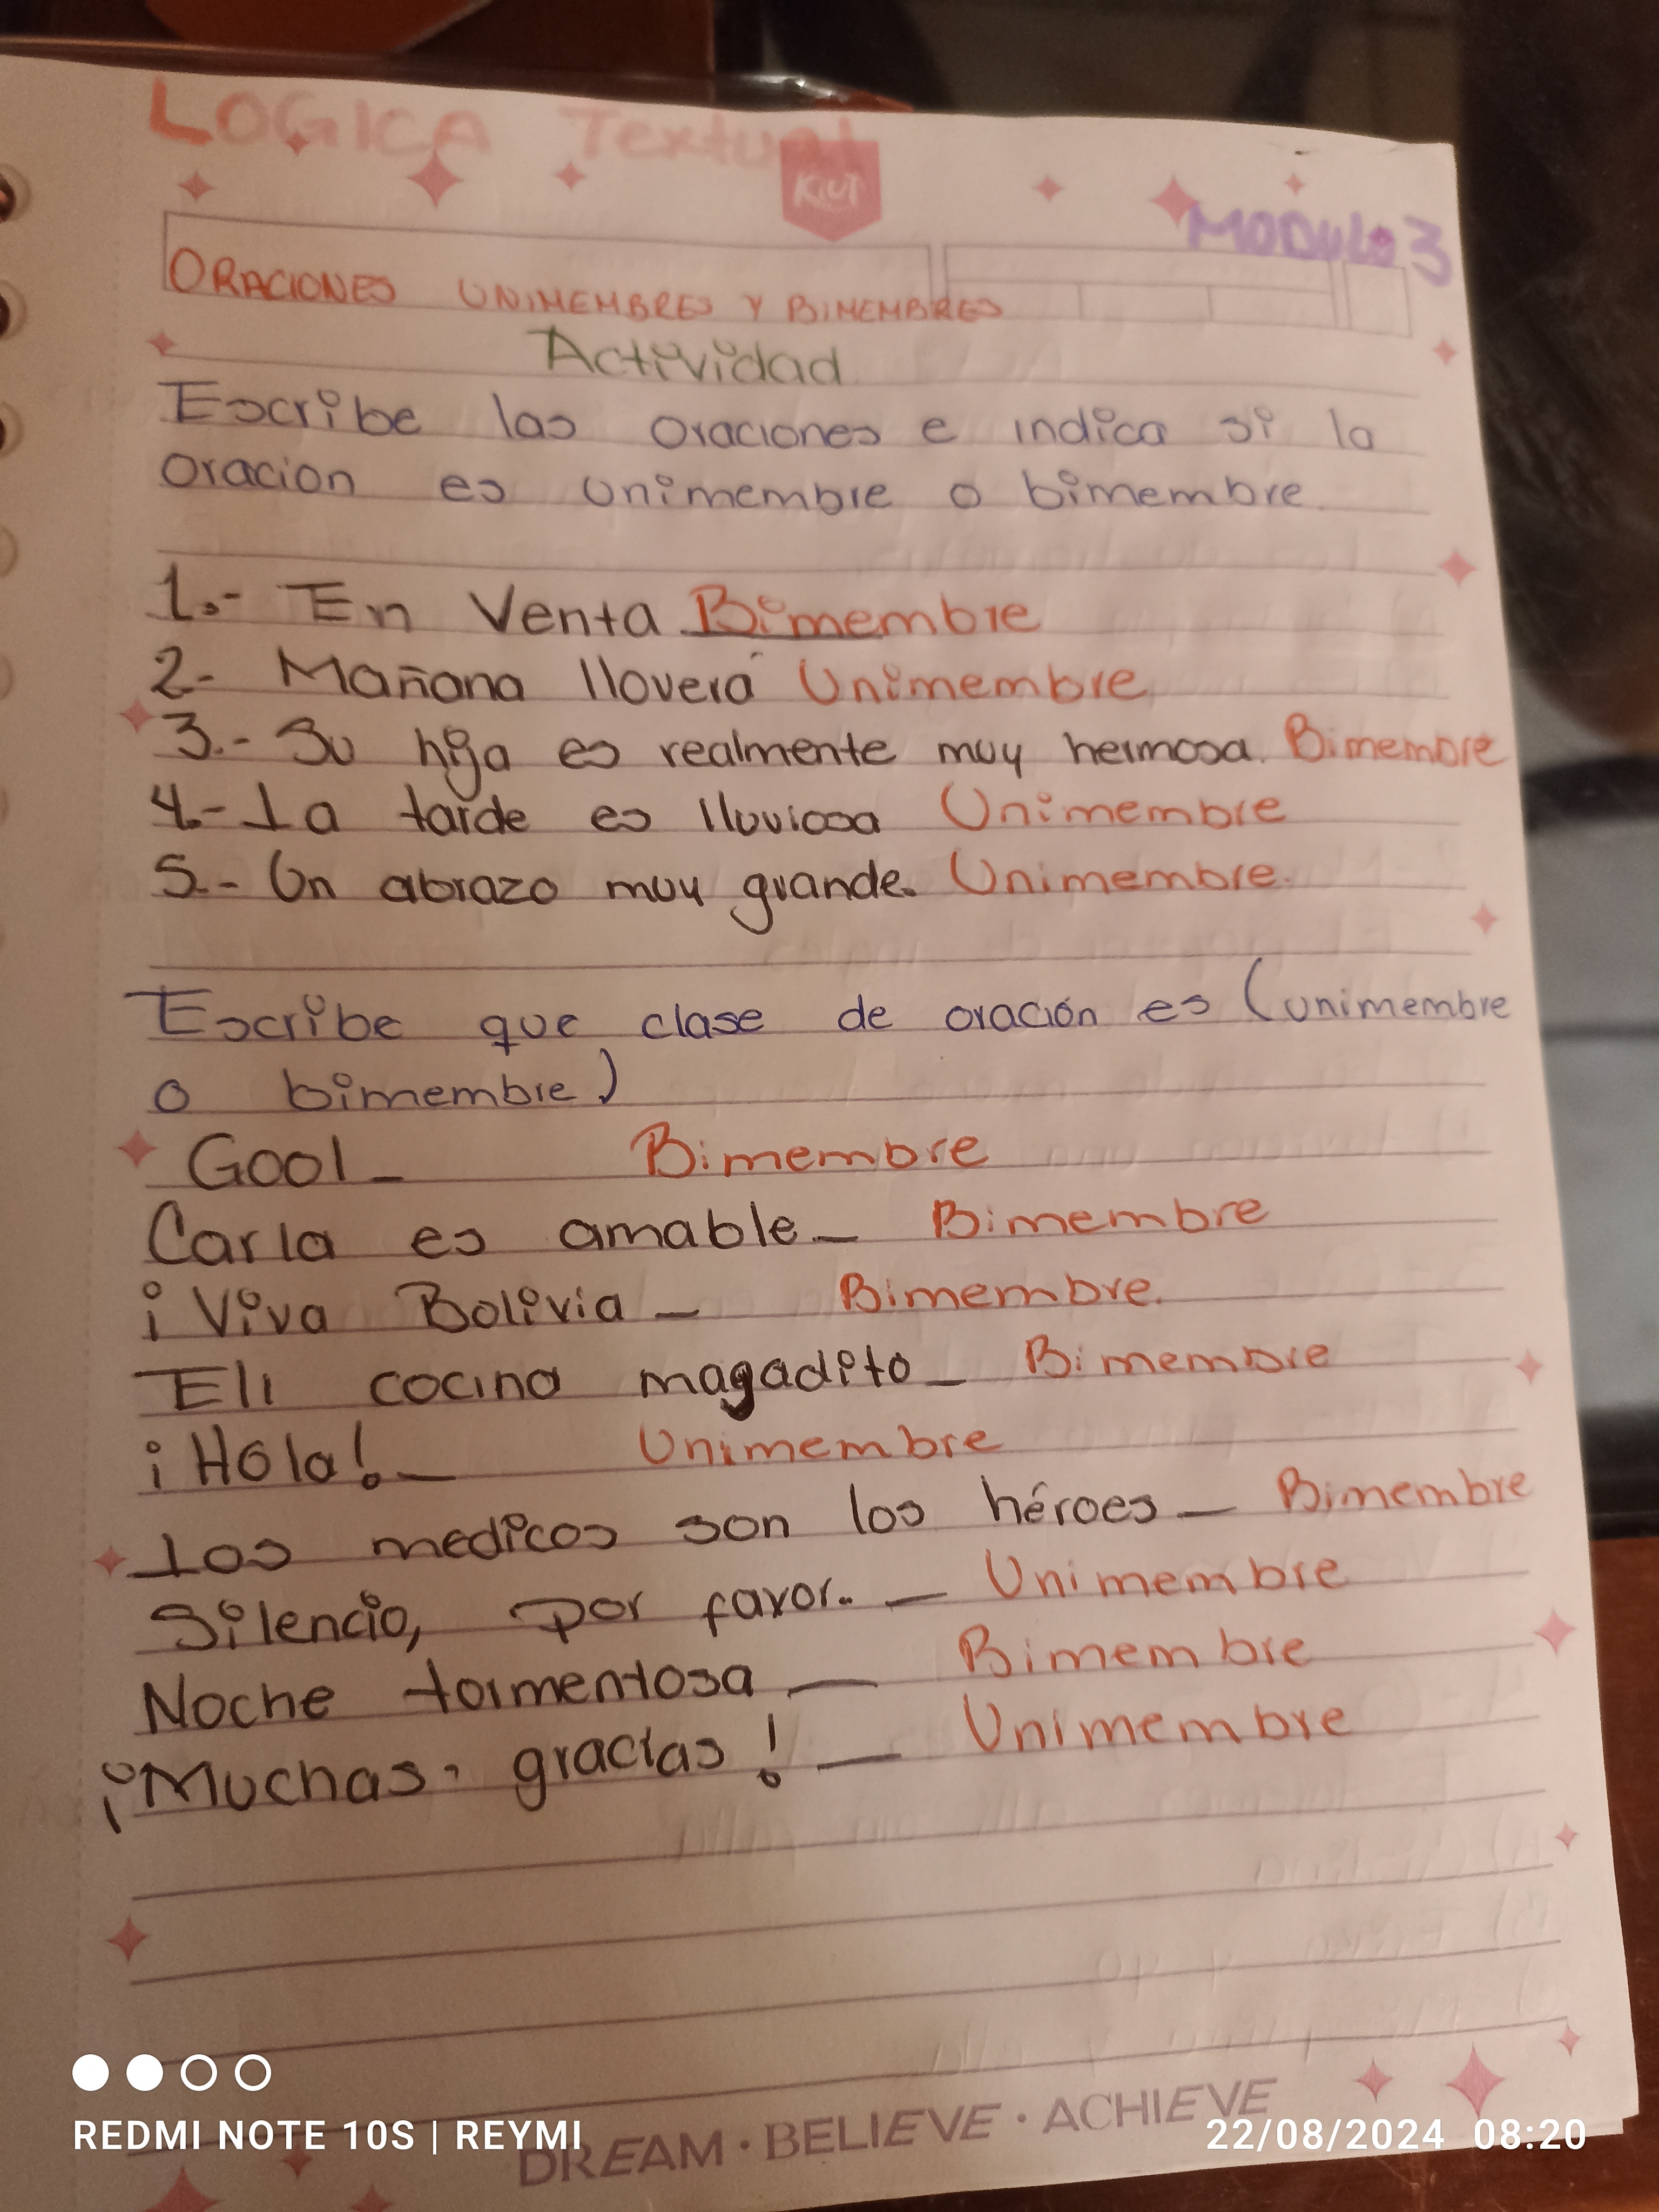 LOGICA Textual
KIUT
MODULO 3
ORACIONES UNIMEMBRES Y BIMEMBRES
Actividad
Escribe las oraciones e indica si la
oracion es unimembre o bimembre
1.- En Venta Bimembre
2- Mañana lloverá Unimembre
3.- Su hija es realmente muy hermosa. Bimembre
4.- La tarde es lluviosa Unimembre
5.- Un abrazo muy grande. Unimembre.
Escribe que clase de oración es (unimembre
o bimembre)
Gool - Bimembre
Carla es amable - Bimembre
¡Viva Bolivia - Bimembre.
Eli cocina magadito - Bimembre
¡Hola! - Unimembre
Los medicos son los héroes - Bimembre
Silencio, por favor.. - Unimembre
Noche tormentosa - Bimembre
¡Muchas. gracias! - Unimembre
DREAM · BELIEVE · ACHIEVE
REDMI NOTE 10S | REYMI
22/08/2024 08:20